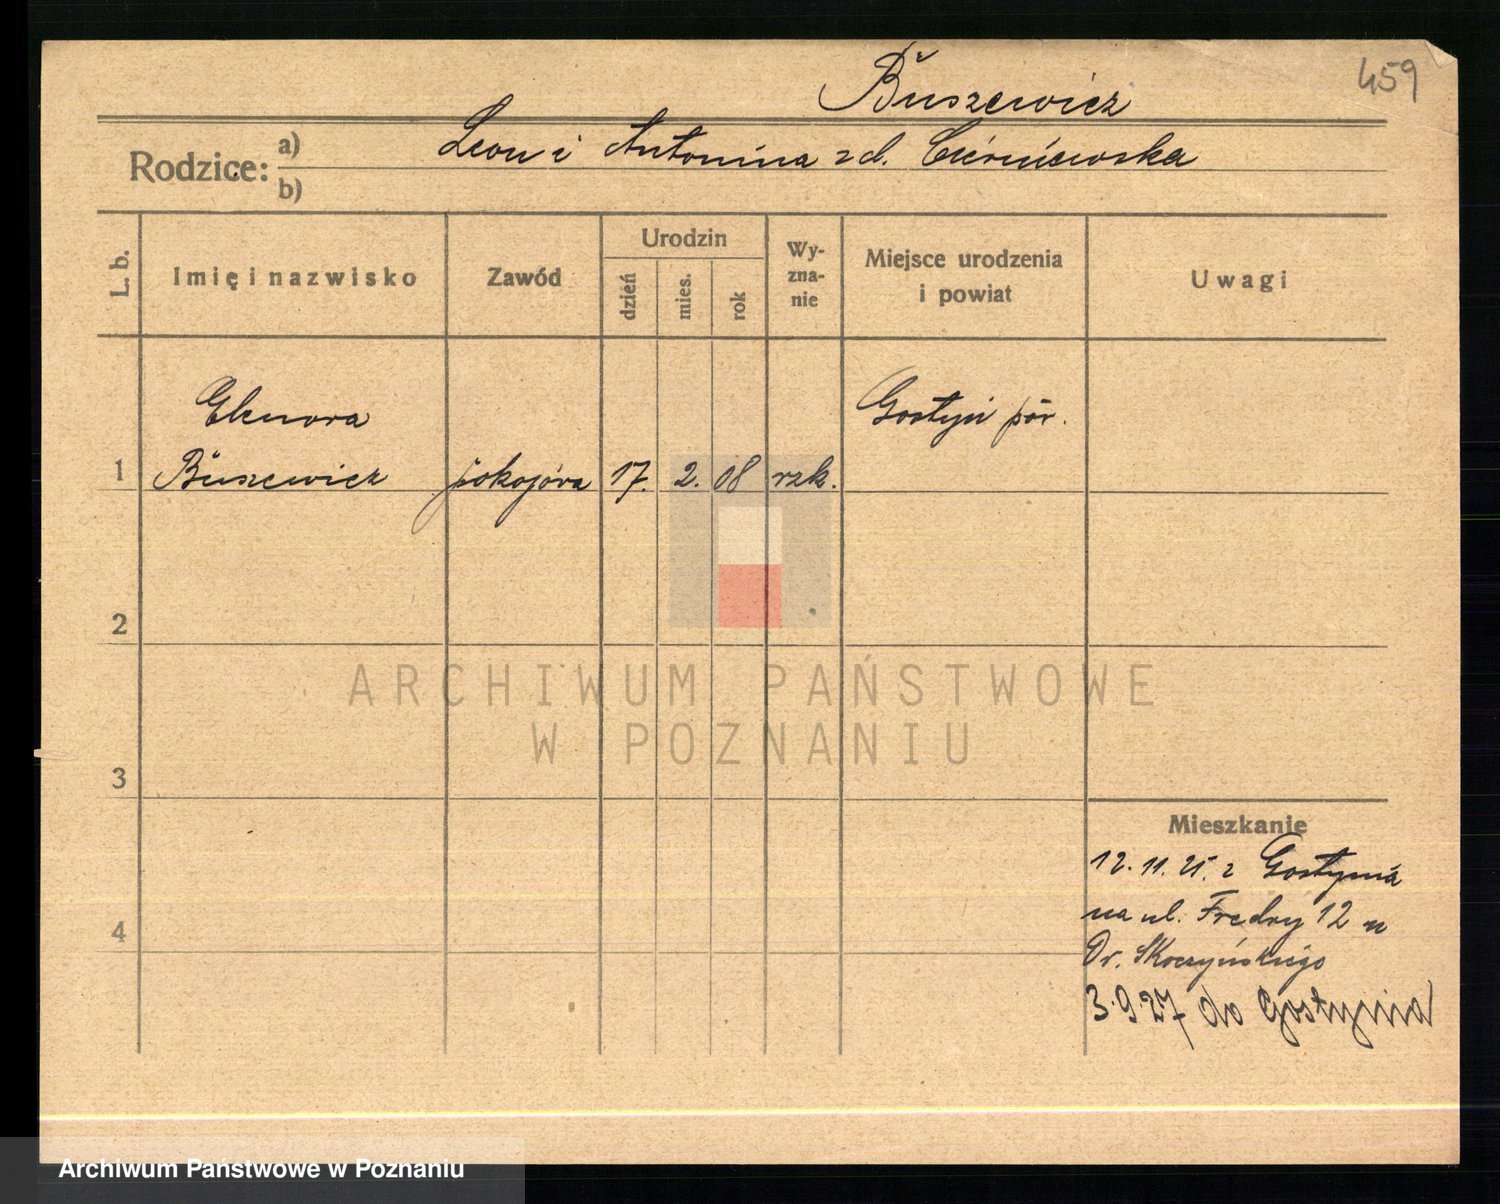 Buszewicz
459
Rodzice: a) Leon i Antonina zd.
b)
L. b.
Imię i nazwisko
Zawód
Urodzin
dzień
mies.
rok
Wy-
zna-
nie
Miejsce urodzenia
i powiat
Uwagi
Elenora
Gostyń pow.
1 Buszewicz pokojówa 17. 2. 08 rzk.
2
3
4
Mieszkanie
12.11.25. z Gostynia
na ul. Fredry 12 u
Dr. Skoczyńskiego
3.9.27 do Gostynia
ARCHIWUM PAŃSTWOWE
W POZNANIU
Archiwum Państwowe w Poznaniu